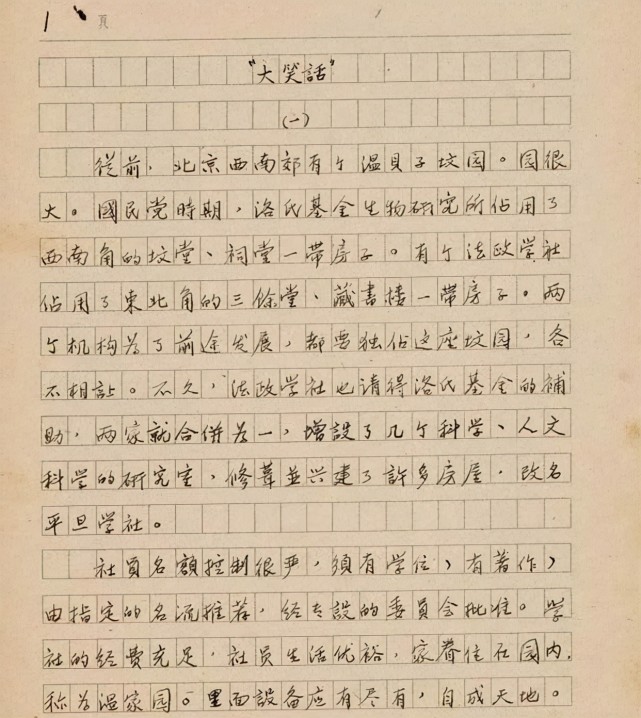 1 頁
"大笑話"
(一)
從前，北京西南郊有个溫貝子坟园。园很
大。國民党時期，洛氏基金生物研究所佔用了
西南角的坟堂、祠堂一帶房子。有个法政学社
佔用了東北角的三餘堂、藏書楼一帶房子。两
个机构為了前途发展，都要独佔这座坟园，各
不相讓。不久，法政学社也请得洛氏基金的補
助，两家就合併為一，增設了几个科学、人文
科学的研究室，修葺並兴建了許多房屋，改名
平旦学社。
社員名額控制很严，須有学位，有著作，
由指定的名流推荐，经专設的委員会批准。学
社的经費充足，社员生活优裕，家眷住在园内，
称為溫家园。里面設备应有尽有，自成天地。